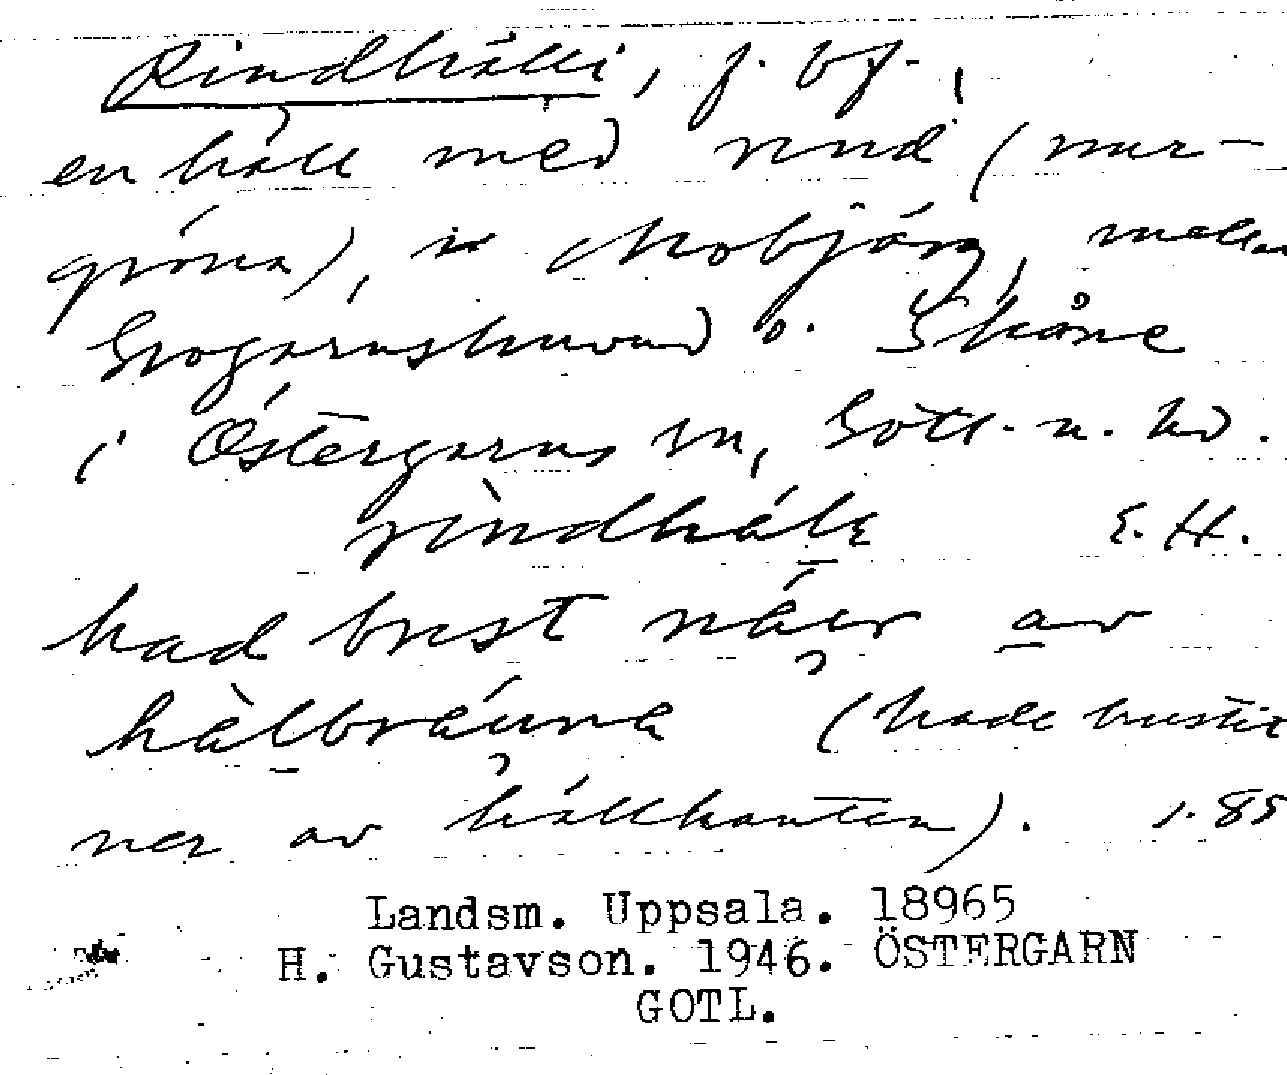 Rindhälli, f. bf.,
en häll med rind (mur-
gröna), i Mobjärg, mellan
Grogarnshuvud o. Skåne
i Östergarns sn, Gotl. n. hd.
rindhäle E. H.
had brest näer av
hälbräuna (hade brustit
ner av hällkanten). s. 85
Landsm. Uppsala. 18965
H. Gustavson. 1946. ÖSTERGARN
GOTL.